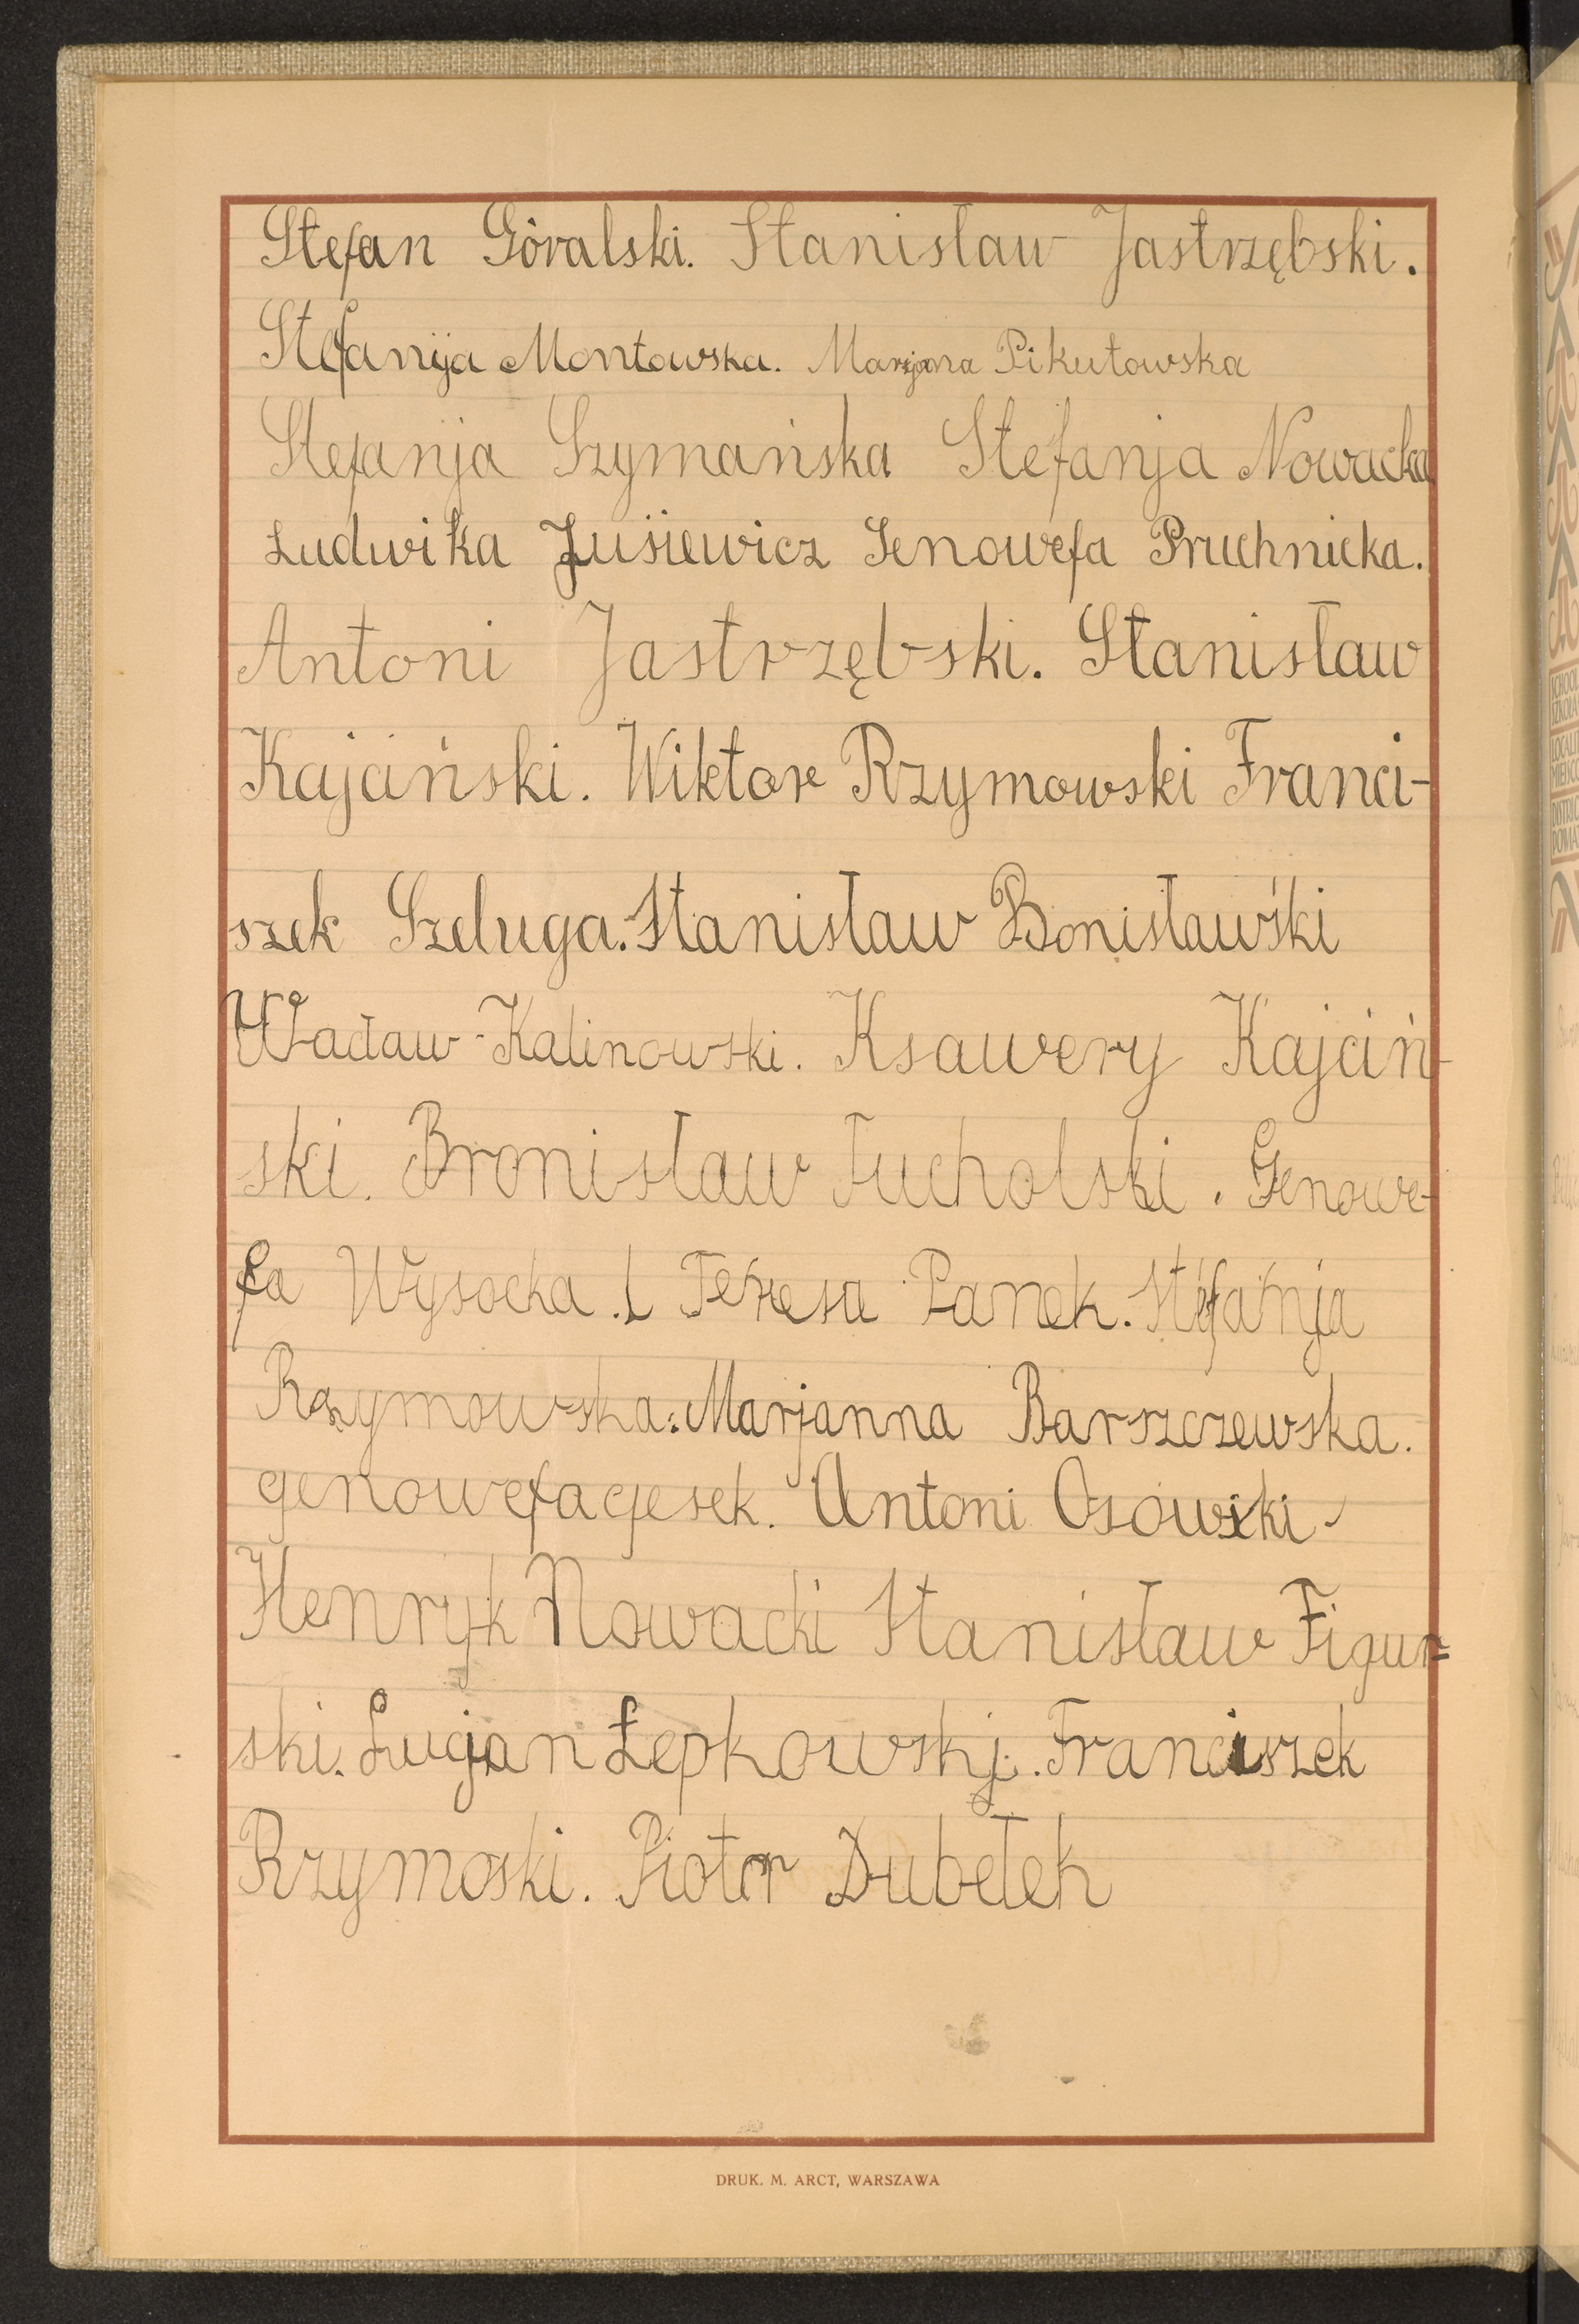 Stefan Góralski. Stanisław Jastrzębski.
Stefanija Montowska. Marjana Pikutowska
Stefanja Szymańska Stefanja Nowacka
Ludwika Jusiewicz Genowefa Pruchnicka.
Antoni Jastrzębski. Stanisław
Kajciński. Wiktor Rzymowski Franci-
szek Szeluga. Stanisław Bonisławski
Wacław Kalinowski. Ksawery Kajciń-
ski. Bronisław Tucholski. Genowe-
fa Wysocka. Teresa Panek. Stefanja
Rzymowska. Marjanna Barszczewska.
genowefa gesek. Antoni Osowski
Henryk Nowacki Stanisław Figur=
ski. Lucjan Łepkowski. Franciszek
Rzymoski. Piotr Dubełek
DRUK. M. ARCT, WARSZAWA